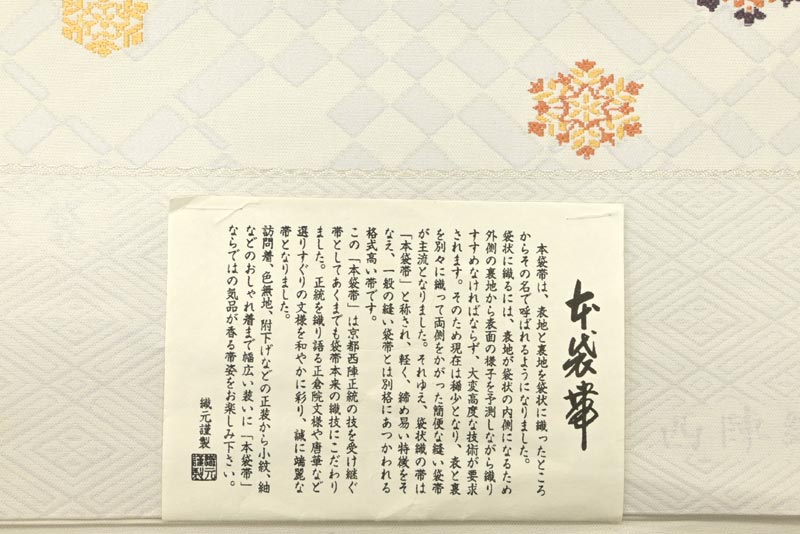 本袋帯
本袋帯は、表地と裏地を袋状に織ったところ
からその名で呼ばれるようになりました。
袋状に織るには、表地が袋状の内側になるため
外側の裏地から表面の様子を予測しながら織り
すすめなければならず、大変高度な技術が要求
されます。そのため現在は稀少となり、表と裏
を別々に織って両側をかがった簡便な縫い袋帯
が主流となりました。それゆえ、袋状織の帯は
「本袋帯」と称され、軽く、締め易い特徴をそ
なえ、一般の縫い袋帯とは別格にあつかわれる
格式高い帯です。
この「本袋帯」は京都西陣正統の技を受け継ぐ
帯としてあくまでも袋帯本来の織技にこだわり
ました。正統を織り語る正倉院文様や唐華など
選りすぐりの文様を和やかに彩り、誠に端麗な
帯となりました。
訪問着、色無地、附下げなどの正装から小紋、紬
などのおしゃれ着まで幅広い装いに「本袋帯」
ならではの気品が香る帯姿をお楽しみ下さい。
織元謹製
織元
謹製